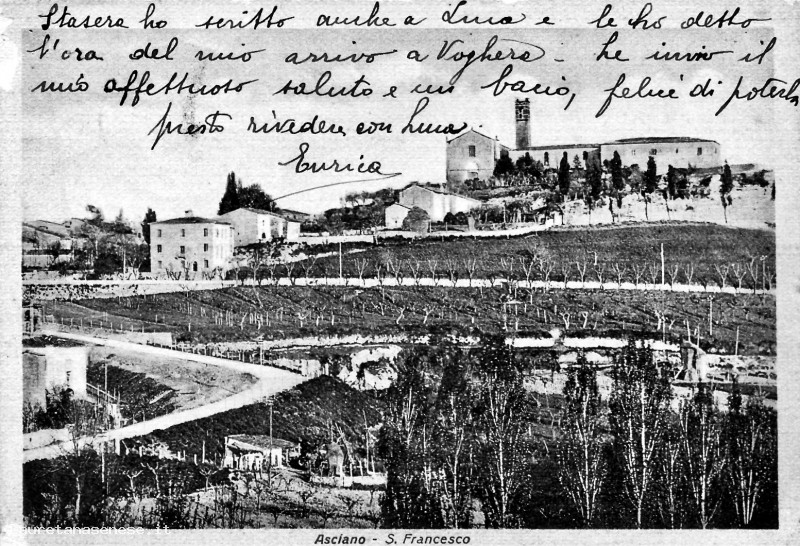 Stasera ho scritto anche a Luca e le ho detto
l'ora del mio arrivo a Voghera - Le invio il
mio affettuoso saluto e un bacio, felice di poterla
presto rivedere con Luca
Enrica
Asciano - S. Francesco